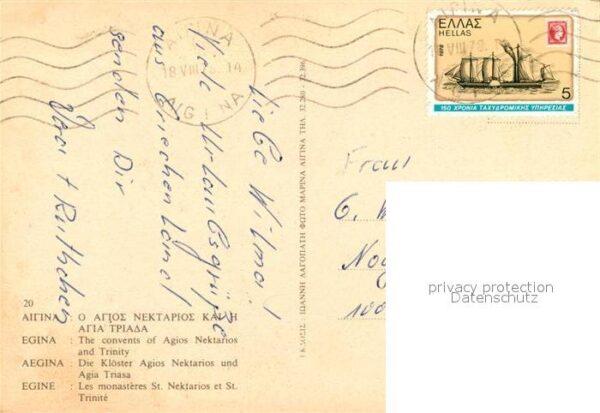 Liebe Wilma!
Viele Urlaubsgrüße
aus Griechenland
senden Dir
+ Ruthchen
ΑΙΓΙΝΑ
18 VIII 78 14
AIGINA
ΑΙΓΙΝΑ
VIII 78
ΕΛΛΑΣ
HELLAS
1978
5
150 ΧΡΟΝΙΑ ΤΑΧΥΔΡΟΜΙΚΗΣ ΥΠΗΡΕΣΙΑΣ
Frau
privacy protection
Datenschutz
20
ΑΙΓΙΝΑ : Ο ΑΓΙΟΣ ΝΕΚΤΑΡΙΟΣ ΚΑΙ Η
ΑΓΙΑ ΤΡΙΑΔΑ
EGINA : The convents of Agios Nektarios
and Trinity
AEGINA : Die Klöster Agios Nektarios und
Agia Triasa
EGINE : Les monastères St. Nektarios et St.
Trinité
ΕΚΔΟΣΙΣ : ΙΩΑΝΝΗ ΛΑΓΟΠΑΤΗ ΦΩΤΟ ΜΑΡΙΝΑ ΑΙΓΙΝΑ ΤΗΛ. 22.260 - 22.396